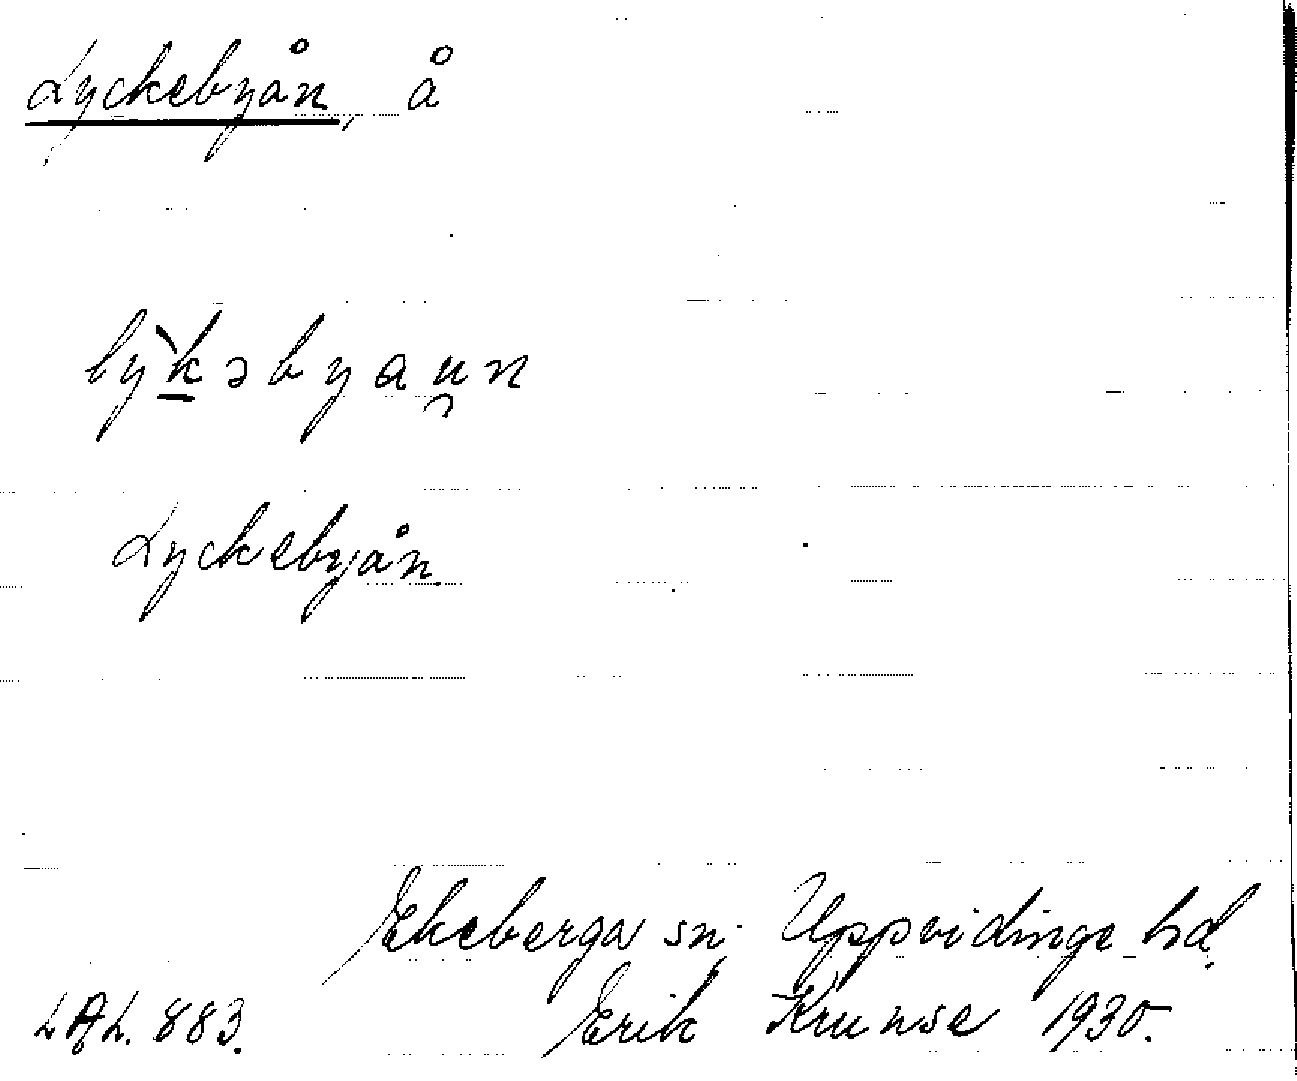 Lyckebyån, å
lỳk̲əbyau̯n
Lyckebyån
Ekeberga sn. Uppvidinge hd.
LAL. 883. Erik Krunse 1930.